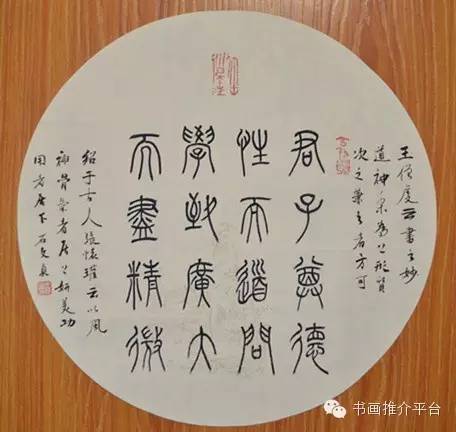 王僧虔云書之妙
道神采為上形質
次之兼之者方可
君子尊德
性而道問
學致廣大
而盡精微
紹于古人張懷瓘云以風
神骨氣者居上妍美功
用者居下
书画推介平台